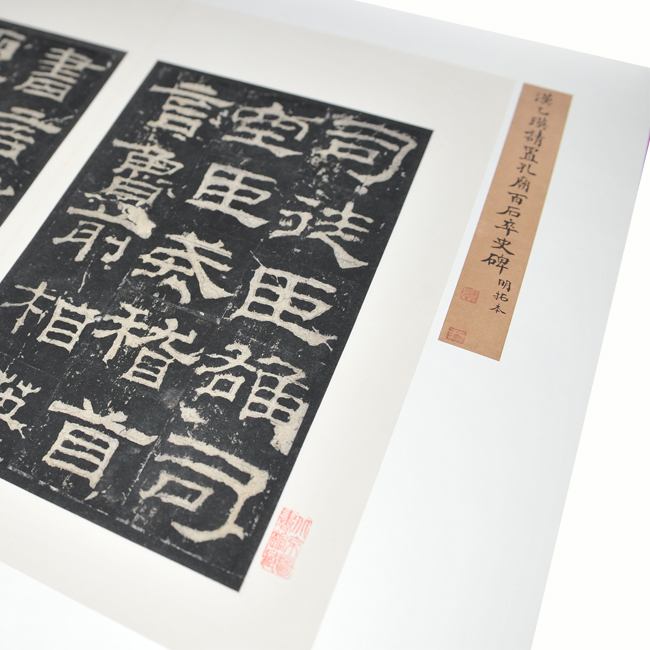 漢乙瑛請置孔廟百石卒史碑 明拓本
司徒臣雄司
空臣戒稽首
言魯前相瑛
書言